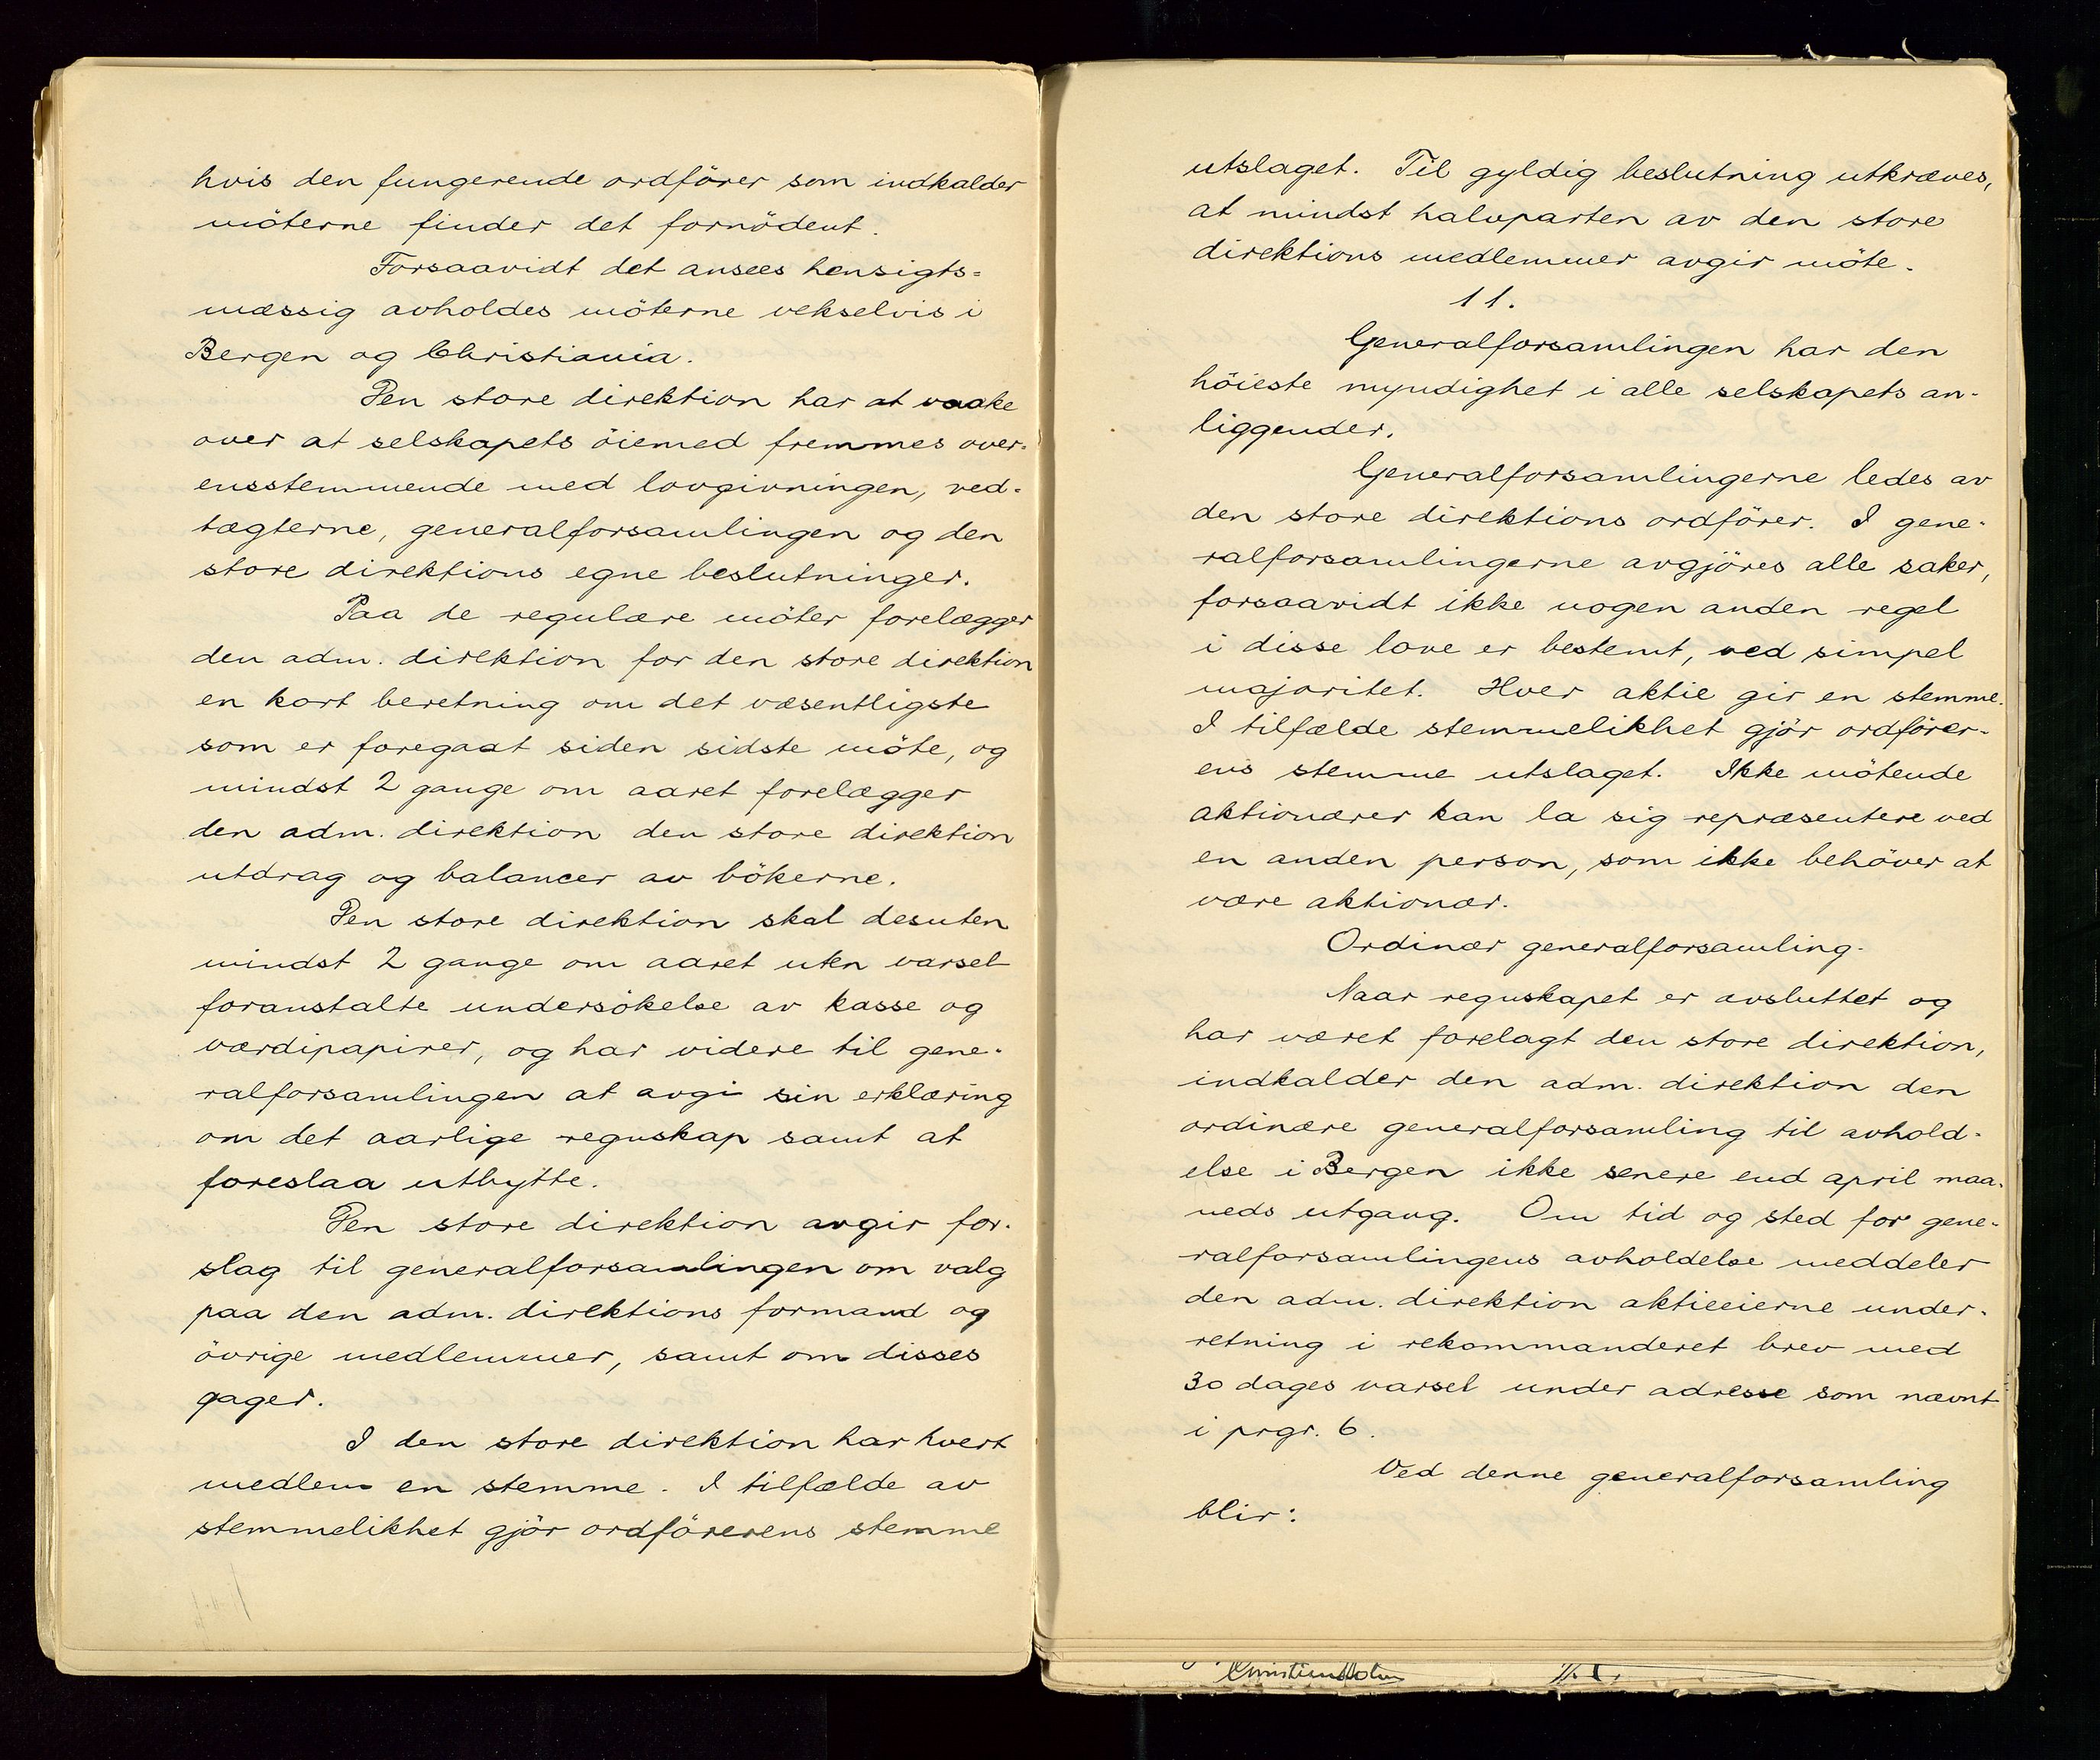 hvis den fungerende ordförer som indkalder
möterne finder det fornödent.
Forsaavidt det ansees hensigts=
mæssig avholdes möterne vekselvis i
Bergen og Christiania.
Den store direktion har at vaake
over at selskapets öiemed fremmes over-
ensstemmende med lovgivningen, ved-
tægterne, generalforsamlingen og den
store direktions egne beslutninger.
Paa de regulære möter forelægger
den adm. direktion for den store direktion
en kort beretning om det væsentligste
som er foregaat siden sidste möte, og
mindst 2 gange om aaret forelægger
den adm. direktion den store direktion
utdrag og balancer av bökerne.
Den store direktion skal desuten
mindst 2 gange om aaret uten varsel
foranstalte undersökelse av kasse og
værdipapirer, og har videre til gene-
ralforsamlingen at avgi sin erklæring
om det aarlige regnskap samt at
foreslaa utbytte.
Den store direktion avgir for-
slag til generalforsamlingen om valg
paa den adm. direktions formand og
övrige medlemmer, samt om disses
gager.
I den store direktion har hvert
medlem en stemme. I tilfælde av
stemmelikhet gjör ordförerens stemme
utslaget. Til gyldig beslutning utkræves,
at mindst halvparten av den store
direktions medlemmer avgir möte.
11.
Generalforsamlingen har den
höieste myndighet i alle selskapets an-
liggender.
Generalforsamlingerne ledes av
den store direktions ordförer. I gene-
ralforsamlingerne avgjöres alle saker,
forsaavidt ikke nogen anden regel
i disse love er bestemt, ved simpel
majoritet. Hver aktie gir en stemme.
I tilfælde stemmelikhet gjör ordförer-
ens stemme utslaget. Ikke mötende
aktionærer kan la sig repræsentere ved
en anden person, som ikke behöver at
være aktionær.
Ordinær generalforsamling.
Naar regnskapet er avsluttet og
har været forelagt den store direktion,
indkalder den adm. direktion den
ordinære generalforsamling til avhold-
else i Bergen ikke senere end april maa-
neds utgang. Om tid og sted for gene-
ralforsamlingens avholdelse meddeler
den adm. direktion aktieeierne under-
retning i rekommanderet brev med
30 dages varsel under adresse som nævnt
i prgr. 6.
Ved denne generalforsamling
blir: